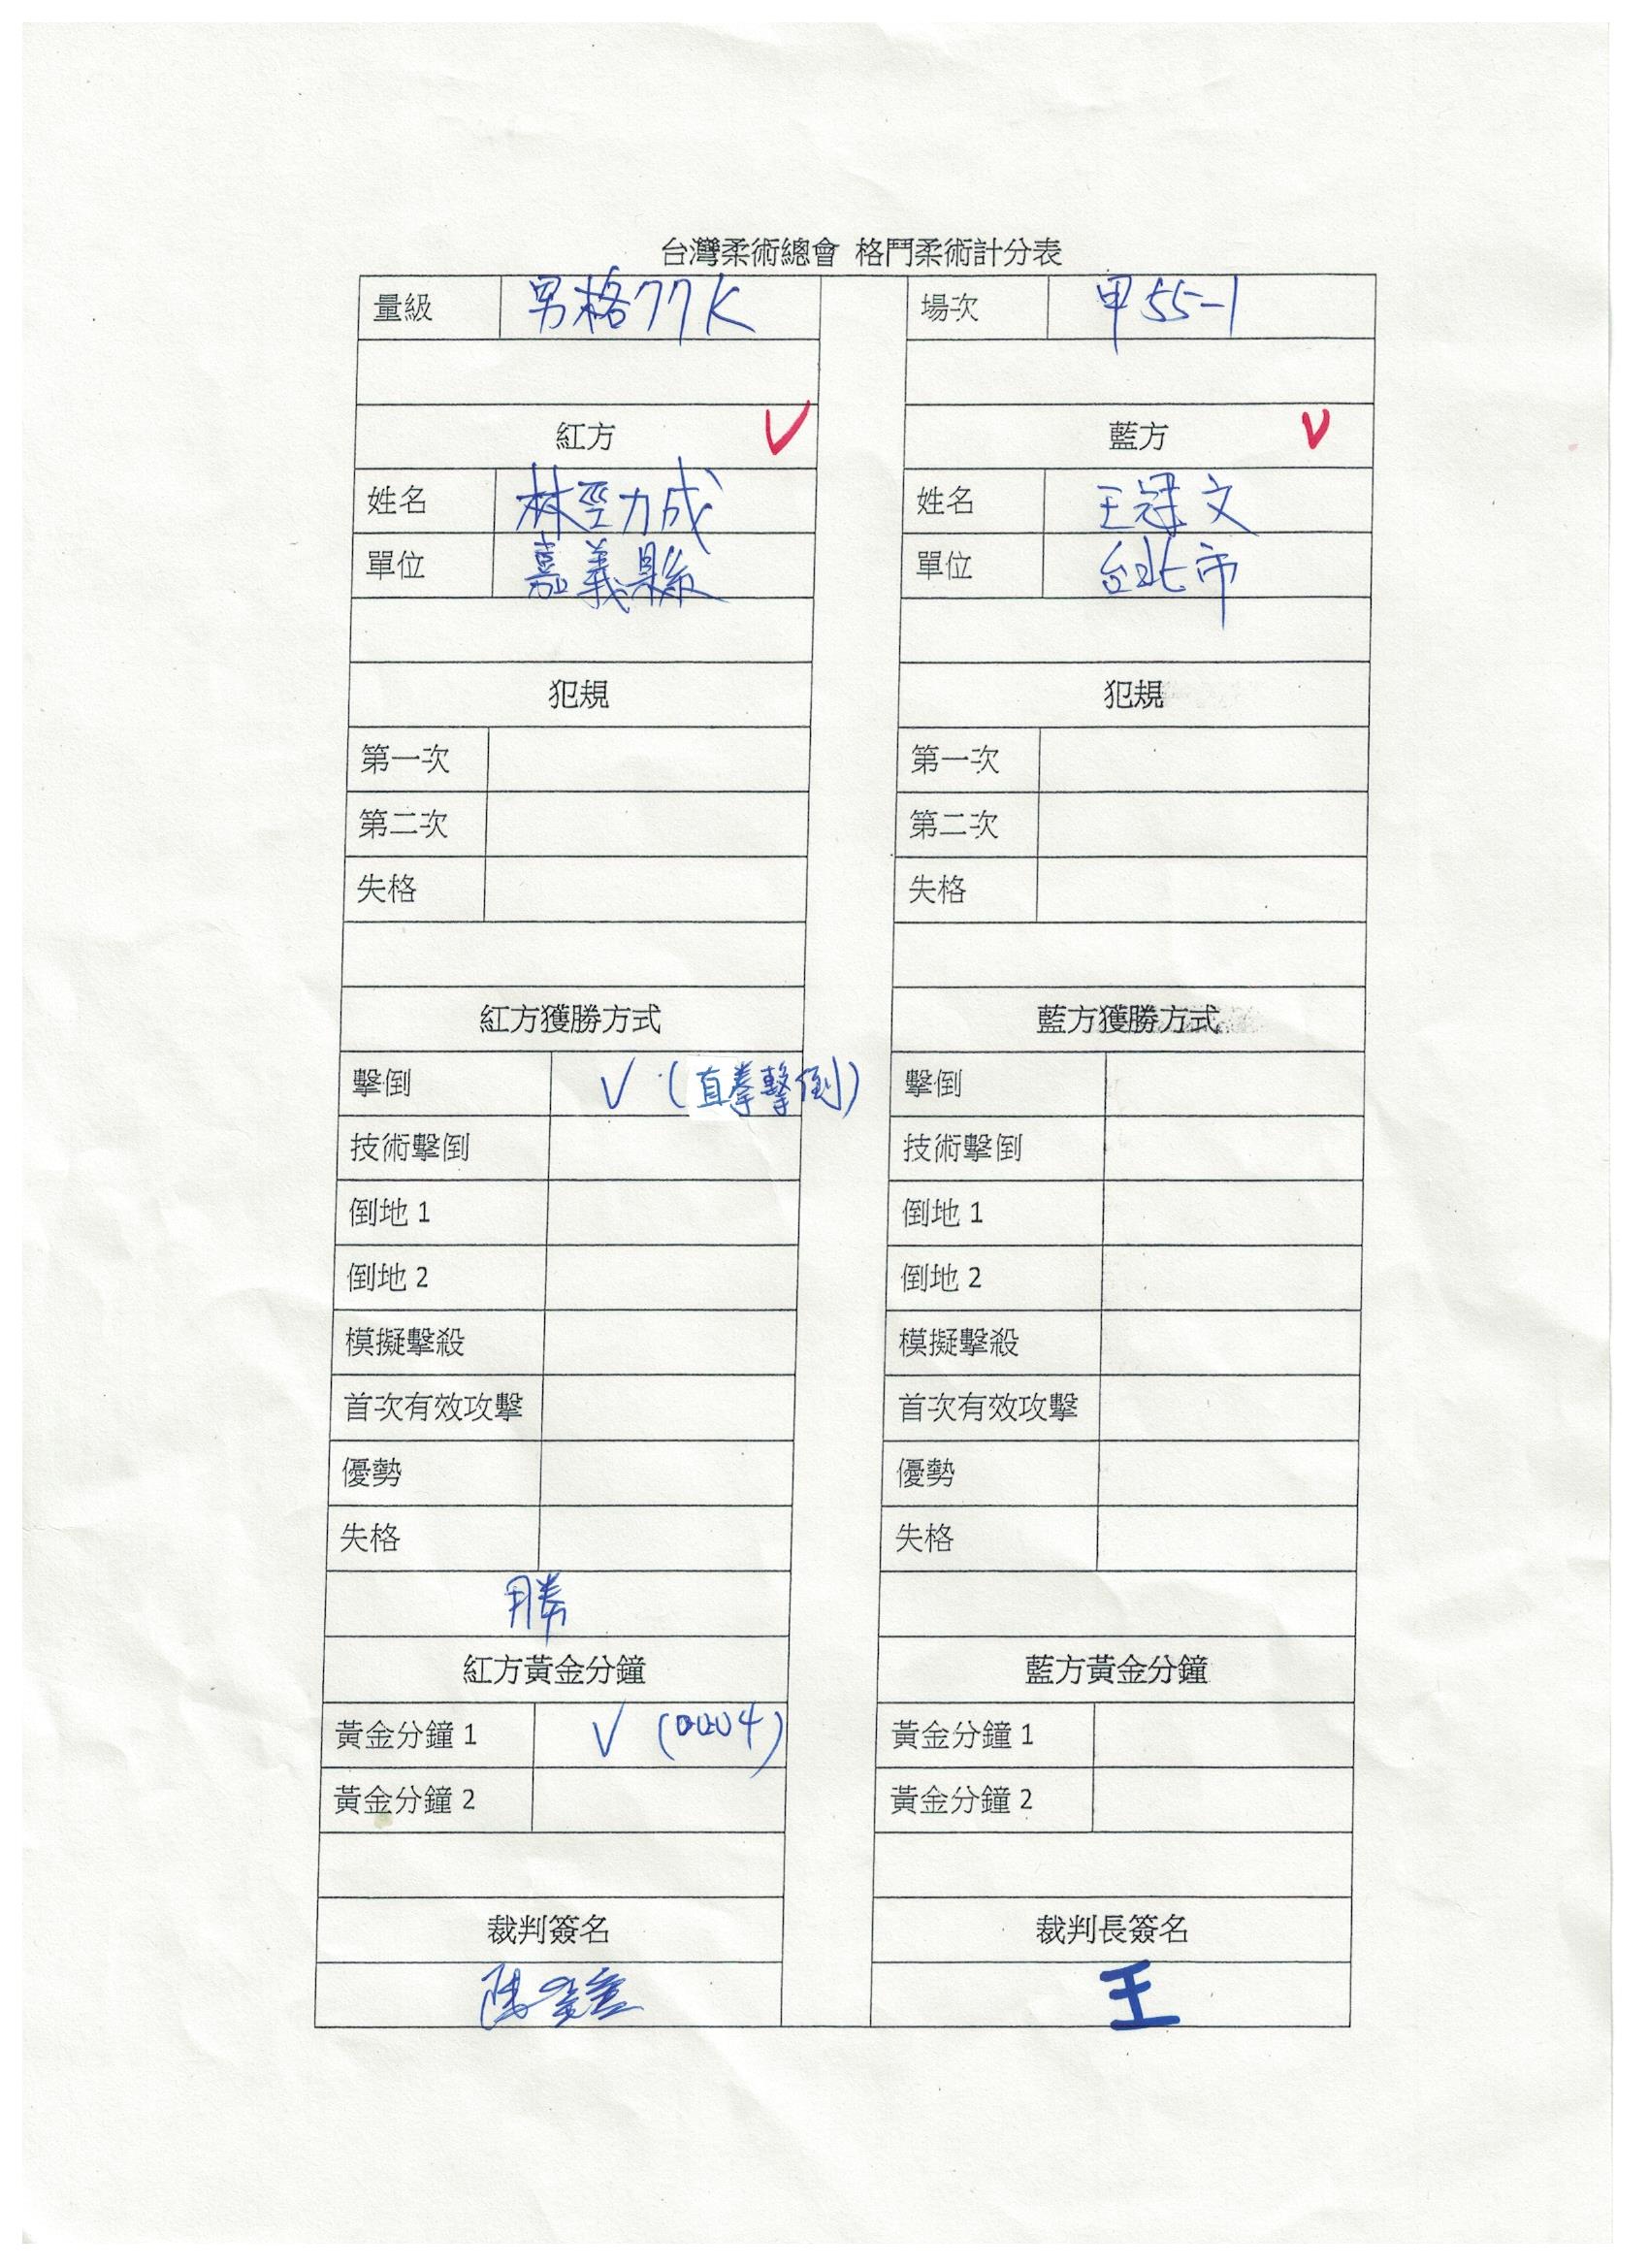 台灣柔術總會 格鬥柔術計分表
量級 男格77K 場次 甲55-1
紅方 ✓ 藍方 ✓
姓名 林勁成 姓名 王冠文
單位 嘉義縣 單位 台北市
犯規 犯規
第一次 第一次
第二次 第二次
失格 失格
紅方獲勝方式 藍方獲勝方式
擊倒 ✓ (直拳擊倒) 擊倒
技術擊倒 技術擊倒
倒地 1 倒地 1
倒地 2 倒地 2
模擬擊殺 模擬擊殺
首次有效攻擊 首次有效攻擊
優勢 優勢
失格 失格
勝
紅方黃金分鐘 藍方黃金分鐘
黃金分鐘 1 ✓ (0004) 黃金分鐘 1
黃金分鐘 2 黃金分鐘 2
裁判簽名 裁判長簽名
王